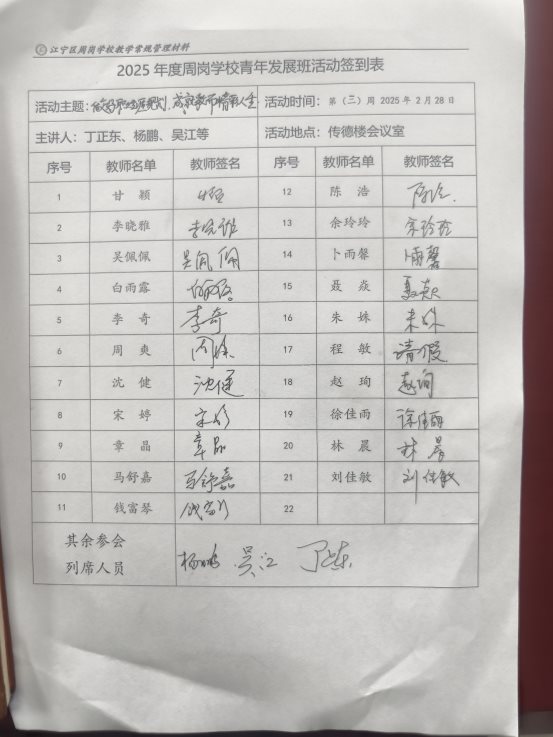 江宁区周岗学校教学常规管理材料
2025 年度周岗学校青年发展班活动签到表
活动主题：做好职业生涯规划，成就教师精彩人生 活动时间：第（三）周 2025 年 2 月 28 日
主讲人：丁正东、杨鹏、吴江等 活动地点：传德楼会议室
序号 教师名单 教师签名 序号 教师名单 教师签名
1 甘 颖 12 陈 浩 陈浩
2 李晓雅 李晓雅 13 余玲玲 余玲玲
3 吴佩佩 吴佩佩 14 卜雨馨 卜雨馨
4 白雨露 白雨露 15 聂 焱 聂焱
5 李 奇 李奇 16 朱 姝 朱姝
6 周 爽 周爽 17 程 敏 请假
7 沈 健 沈健 18 赵 珣 赵珣
8 宋 婷 宋婷 19 徐佳雨 徐佳雨
9 章 晶 章晶 20 林 晨 林晨
10 马舒嘉 马舒嘉 21 刘佳敏 刘佳敏
11 钱富琴 钱富琴 22
其余参会
列席人员 杨鹏 吴江 丁正东